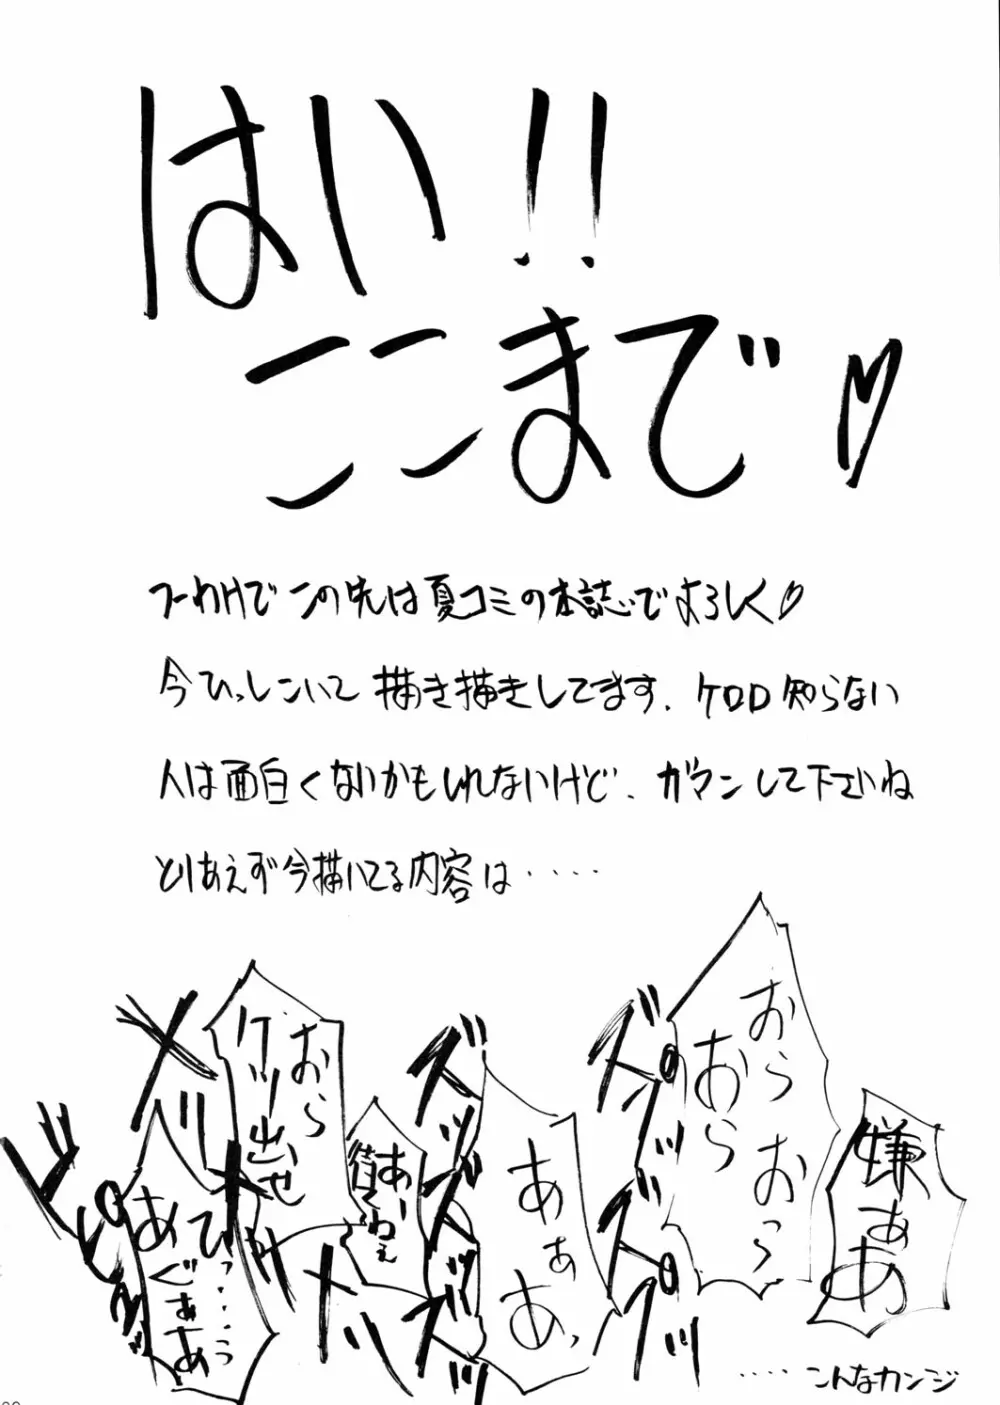 はい!!
ここまで♡
つーわけでこの先は夏コミの本誌でよろしく♡
今ひっしこいて描き描きしてます。ケロロ知らない
人は面白くないかもしれないけど、ガマンして下さいね
とりあえず今描いてる内容は・・・・
嫌ぁあ
おらおっ
おら
ズパンッ
ズパンッ
あぁ
あぁっ
ズッ
ズッ
ズッ
あー
おら
ケリ出せ
ひっ‥‥う
あぐぁあ
・・・・こんなカンジ